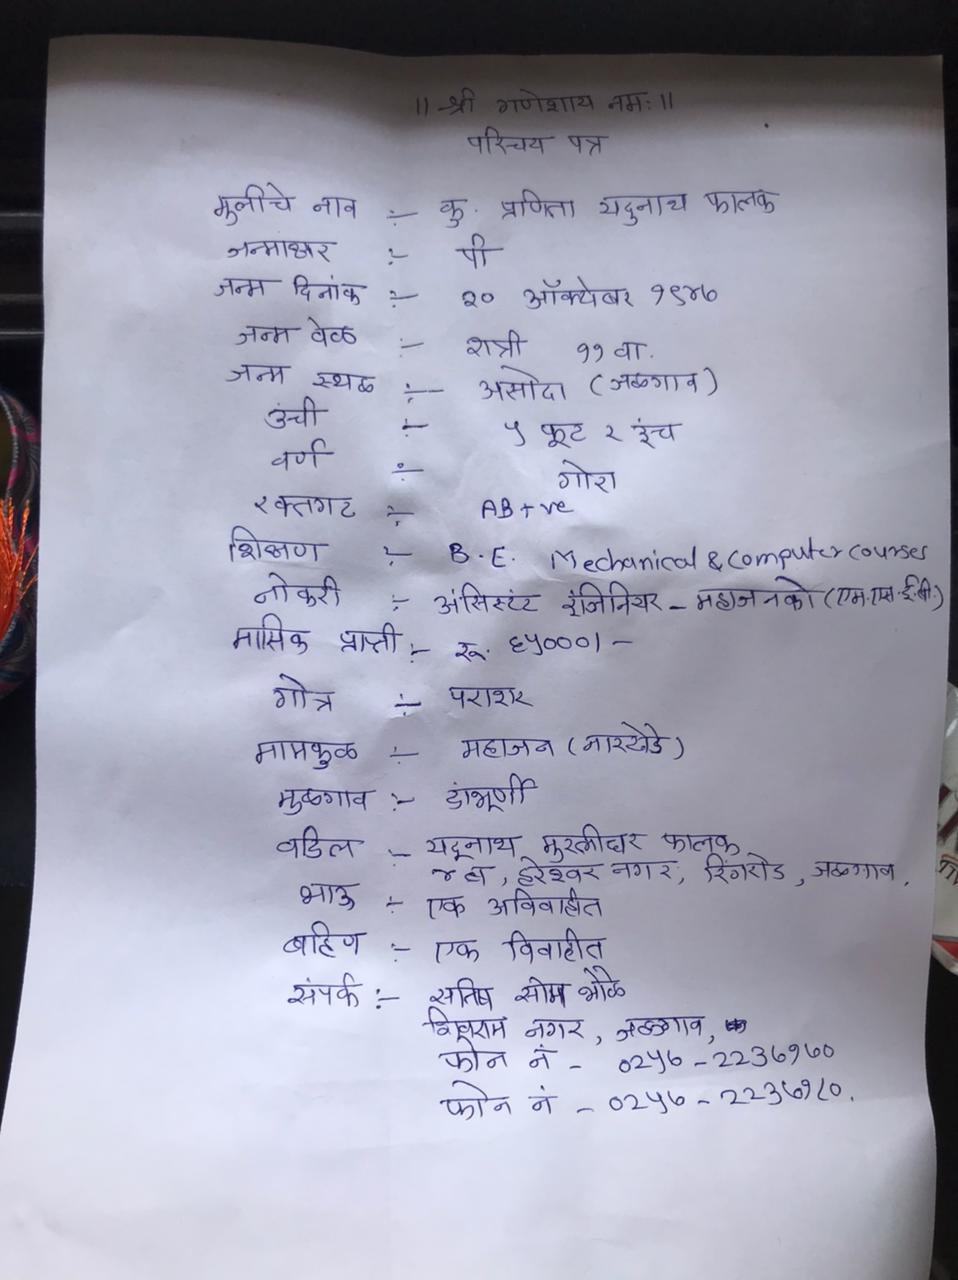 ॥ श्री गणेशाय नमः ॥
परिचय पत्र
मुलीचे नाव :- कु. प्रणिता यदुनाथ फालक
जन्माक्षर :- पी
जन्म दिनांक :- २० ऑक्टोबर १९४७
जन्म वेळ :- रात्री ११ वा.
जन्म स्थळ :- असोदा (जळगाव)
उंची :- ५ फूट २ इंच
वर्ण :- गोरा
रक्तगट :- AB+ve
शिक्षण :- B.E. Mechanical & computer courses
नोकरी :- अंसिस्टंट इंजिनियर - महाजनको (एम.एस.ई.बी.)
मासिक प्राप्ती :- रू. ६५०००/-
गोत्र :- पराशर
मामकुळ :- महाजन (नारखेडे)
मुळगाव :- डांभूर्णी
वडिल :- यदूनाथ मुरलीधर फालक
हरेश्वर नगर, रिंगरोड, जळगाव.
भाऊ :- एक अविवाहीत
बहिण :- एक विवाहीत
संपर्क :- सतिष सोम भोळे
नगर, जळगाव,
फोन नं - 0२५७ - 22३७१७०
फोन नं - 0२५७ - 22३७१८०.